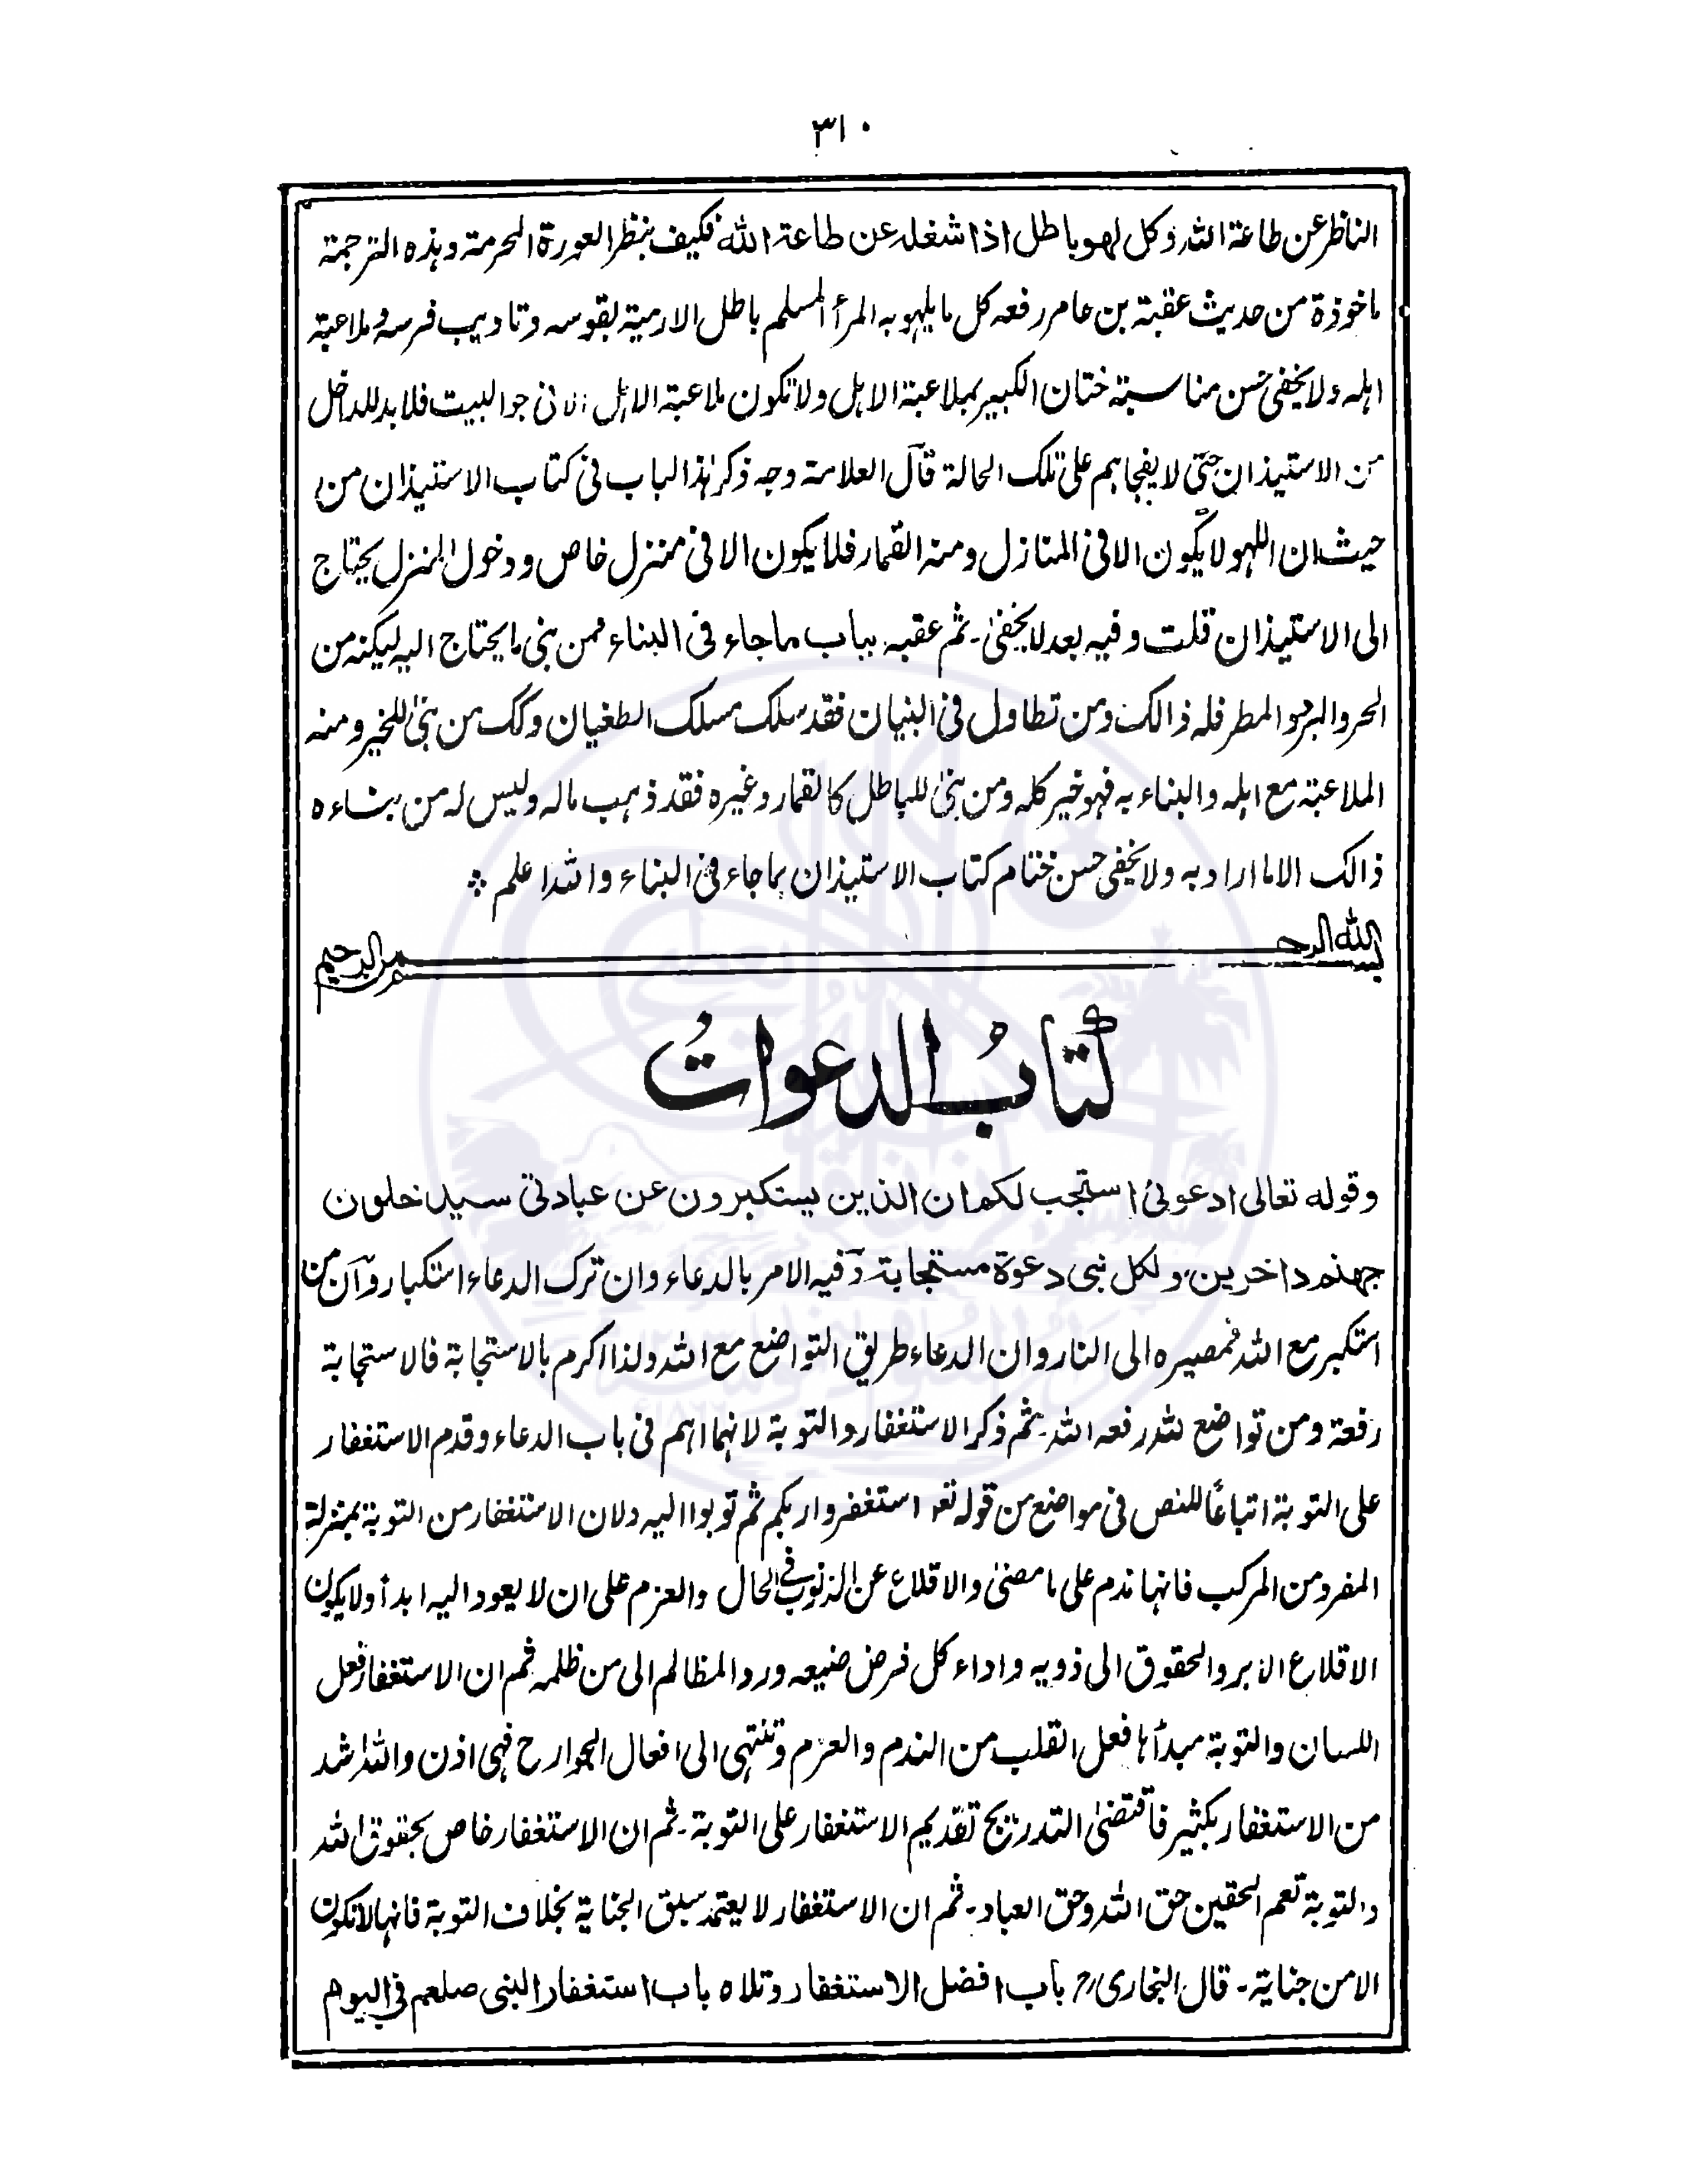 ٣١٠
الناظر عن طاعة الله وكل لهو باطل اذا شغله عن طاعة الله فكيف بنظر العورة المحرمة وهذه الترجمة
ماخوذة من حديث عقبة بن عامر رفعه كل ما يلهو به المرأ المسلم باطل الا رمية لقوسه وتاديب فرسه وملاعبة
اهله ولا يخفى حسن مناسبة ختان الكبير بملاعبة الاهل ولا تكون ملاعبة الاهل الا فى جوا البيت فلا بد للداخل
من الاستيذان حتى لا يفجاهم على تلك الحالة قال العلامة وجه ذكر هذا الباب فى كتاب الاستيذان من
حيث ان اللهو لا يكون الا فى المنازل ومنه القمار فلا يكون الا فى منزل خاص ودخول المنزل يحتاج
الى الاستيذان قلت وفيه بعد لا يخفىٰ۔ ثم عقبه بباب ما جاء فى البناء فمن بنى ما يحتاج اليه ليكنه من
الحر والبرد والمطر فله ذالك ومن تطاول فى البنيان فقد سلك مسلك الطغيان وكك من بنىٰ للخير ومنه
الملاعبة مع اهله والبناء به فهو خير كله ومن بنىٰ للباطل كالقمار وغيره فقد ذهب ماله وليس له من بناءه
ذالك الا ما اراد به ولا يخفى حسن ختام كتاب الاستيذان بما جاء فى البناء والله اعلم
بسم الله الرحمن الرحيم
كتابُ الدعواتُ
وقوله تعالى ادعونى استجب لكم ان الذين يستكبرون عن عبادتى سيدخلون
جهنم داخرين، ولكل نبى دعوة مستجابة، وفيه الامر بالدعاء وان ترك الدعاء استكبار وان من
استكبر مع الله فمصيره الى النار وان الدعاء طريق التواضع مع الله ولذا اكرم بالاستجابة فالاستجابة
رفعة ومن تواضع لله رفعه الله۔ ثم ذكر الاستغفار والتوبة لانهما اهم فى باب الدعاء وقدم الاستغفار
على التوبة اتباعًا للنص فى مواضع من قوله تعو استغفروا ربكم ثم توبوا اليه ولان الاستغفار من التوبة بمنزلة
المفرد من المركب فانها ندم على ما مضىٰ والاقلاع عن الذنوب فى الحال والعزم على ان لا يعود اليه ابدأ ولا يكون
الاقلاع الا برد الحقوق الى ذويه واداء كل فرض ضيعه ورد المظالم الى من ظلمه ثم ان الاستغفار فعل
اللسان والتوبة مبدأها فعل القلب من الندم والعزم وتنتهى الى افعال الجوارح فهى اذن والله اشد
من الاستغفار بكثير فاقتضىٰ التدريج تقديم الاستغفار على التوبة۔ ثم ان الاستغفار خاص بحقوق الله
والتوبة تعم الحقين حق الله وحق العباد۔ ثم ان الاستغفار لا يعتمد سبق الجناية بخلاف التوبة فانها لا تكون
الا من جناية۔ قال البخارىؒ باب افضل الاستغفار وتلاه باب استغفار النبى صلعم فى اليوم